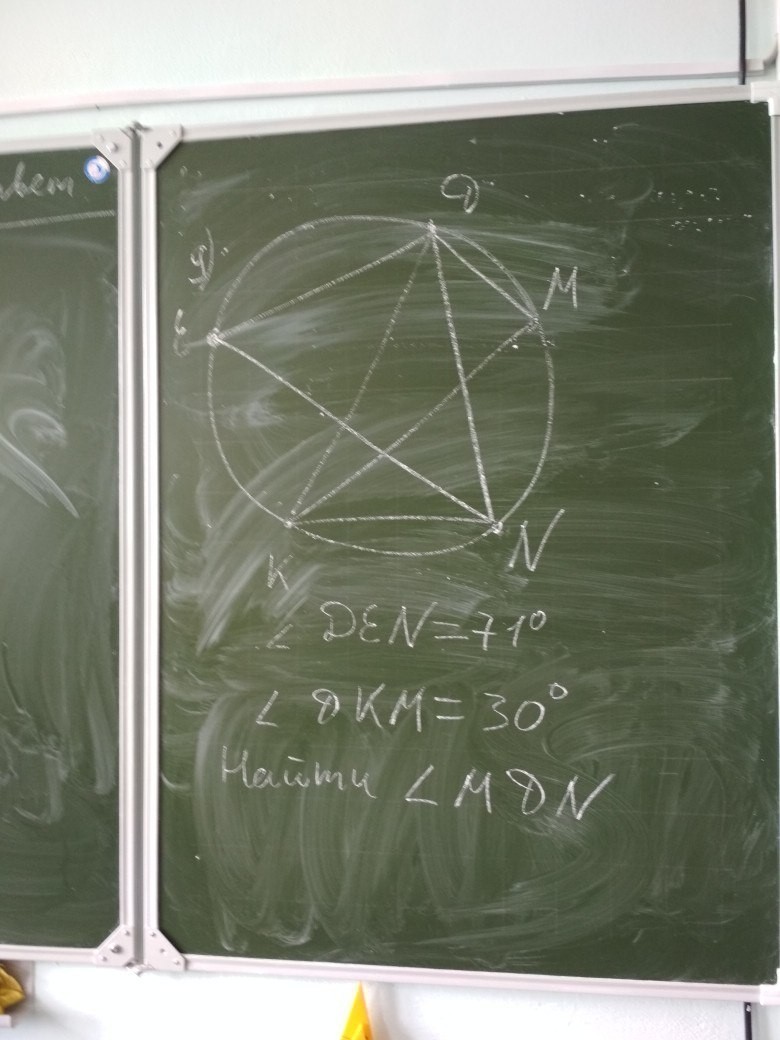 D
M
E
K
N
∠ DEN=71°
∠ DKM=30°
Найти ∠ MDN